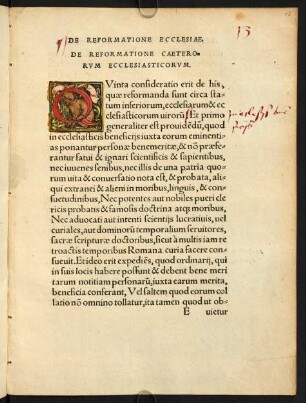 13
DE REFORMATIONE ECCLESIAE.
DE REFORMATIONE CAETERO-
RVM ECCLESIASTICORVM.
QVinta consideratio erit de his,
quæ reformanda sunt circa sta
tum inferiorum, ecclesiarum& ec
clesiasticorum uirorũ. Et primo
generaliter est prouidẽdũ, quod
in ecclesiasticis beneficijs iuxta eorum eminenti-
as ponantur personæ benemeritæ, & nõ præfe-
rantur fatui & ignari scientificis & sapientibus,
nec iuuenes senibus, nec illis de una patria quo-
rum uita & conuersatio nota est, & probata, ali-
qui extranei & alieni in moribus, linguis, & con-
suetudinibus, Nec potentes aut nobiles pueri cle
ricis probatis & famosis doctrina atq; moribus,
Nec aduocati aut intenti scientijs lucratiuis, uel
curiales, aut dominorũ temporalium seruitores,
sacræ scripturæ doctoribus, sicut à multis iam re
troactis temporibus Romana curia facere con-
sueuit. Et ideo erit expediẽs, quod ordinarij, qui
in suis locis habere possunt & debent bene meri
tarum notitiam personarũ, iuxta earum merita,
beneficia conferant, Vel saltem quod eorum col
latio nõ omnino tollatur, ita tamen quod ut ob-
E uietur